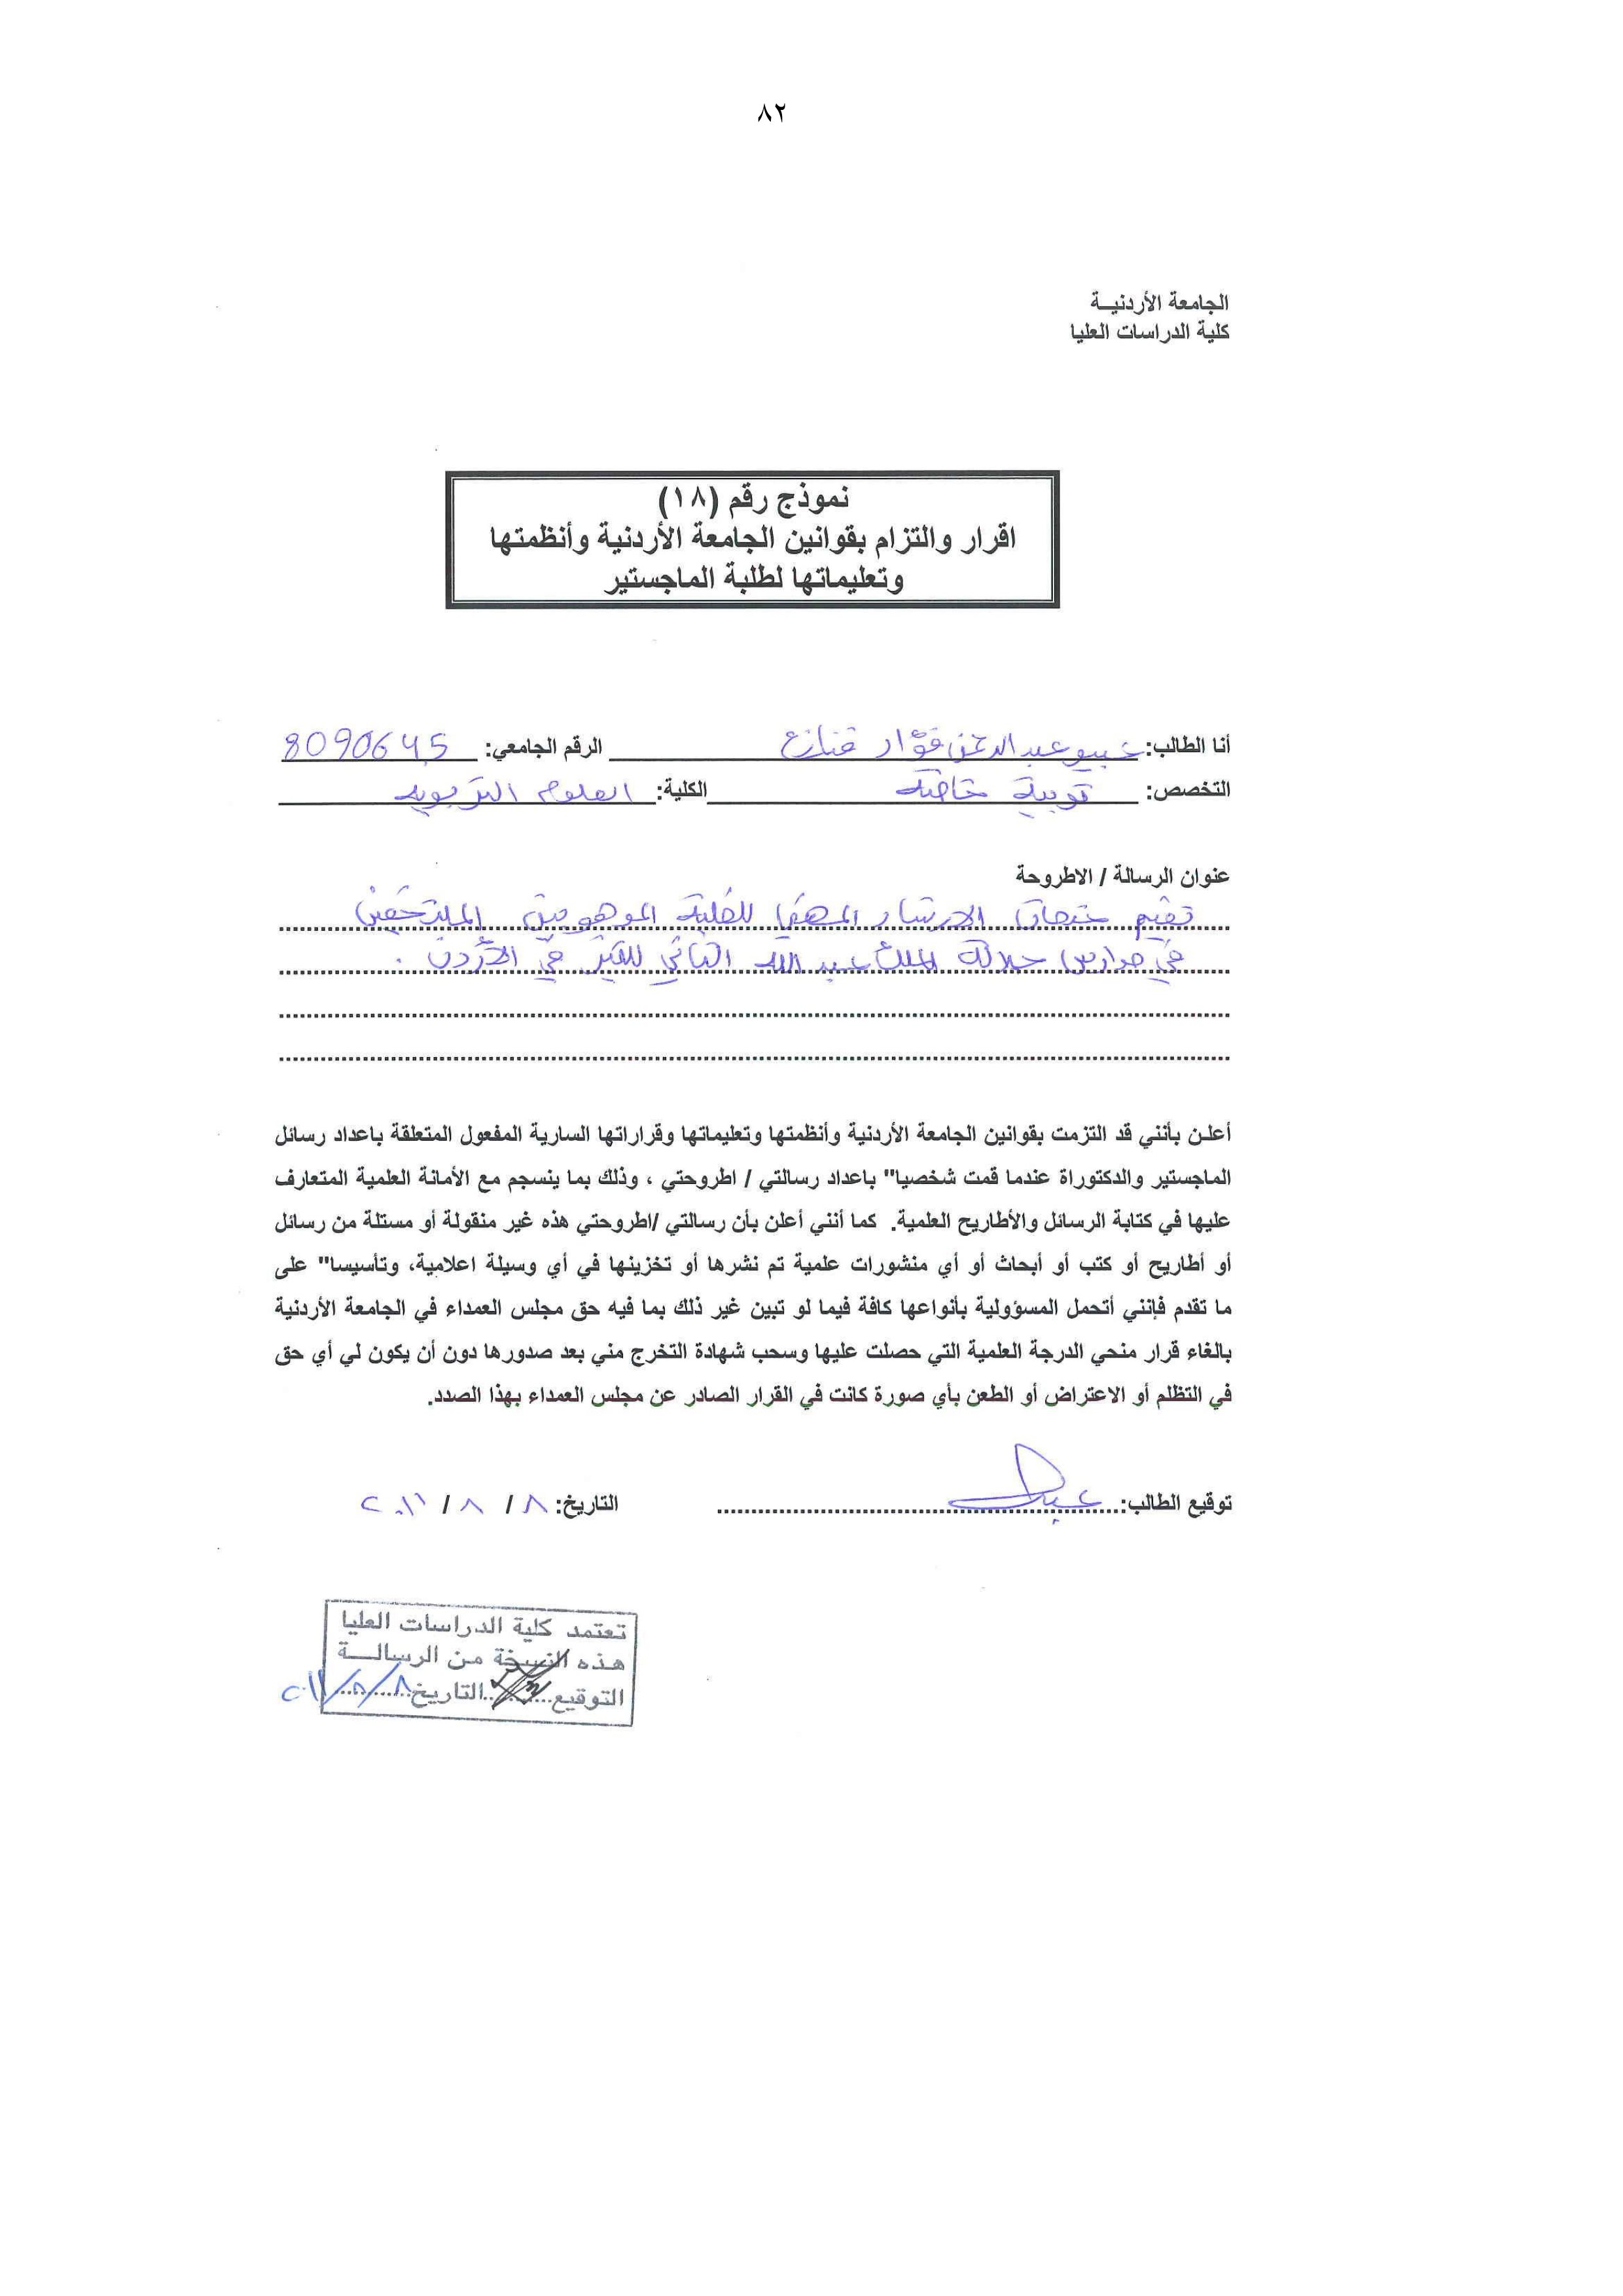 ٨٢
الجامعة الأردنيـــة
كلية الدراسات العليا
نموذج رقم (١٨)
اقرار والتزام بقوانين الجامعة الأردنية وأنظمتها
وتعليماتها لطلبة الماجستير
أنا الطالب: عبير عبد الرحمن فؤاد قنازع الرقم الجامعي: 8090645
التخصص: تربية خاصة الكلية: العلوم التربوية
عنوان الرسالة / الاطروحة
تقييم خدمات الارشاد المهني للطلبة الموهوبين الملتحقين
في مدارس جلالة الملك عبد الله الثاني للتميز في الأردن .
أعلـن بأنني قد التزمت بقوانين الجامعة الأردنية وأنظمتها وتعليماتها وقراراتها السارية المفعول المتعلقة باعداد رسائل
الماجستير والدكتوراة عندما قمت شخصيا" باعداد رسالتي / اطروحتي ، وذلك بما ينسجم مع الأمانة العلمية المتعارف
عليها في كتابة الرسائل والأطاريح العلمية. كما أنني أعلن بأن رسالتي /اطروحتي هذه غير منقولة أو مستلة من رسائل
أو أطاريح أو كتب أو أبحاث أو أي منشورات علمية تم نشرها أو تخزينها في أي وسيلة اعلامية، وتأسيسا" على
ما تقدم فإنني أتحمل المسؤولية بأنواعها كافة فيما لو تبين غير ذلك بما فيه حق مجلس العمداء في الجامعة الأردنية
بالغاء قرار منحي الدرجة العلمية التي حصلت عليها وسحب شهادة التخرج مني بعد صدورها دون أن يكون لي أي حق
في التظلم أو الاعتراض أو الطعن بأي صورة كانت في القرار الصادر عن مجلس العمداء بهذا الصدد.
توقيع الطالب: التاريخ: ٨ / ٨ / ٢٠١١
تعتمد كلية الدراسات العليا
هذه النسخة من الرسالـــة
التوقيع.......التاريخ ٨/٨/٢٠١١